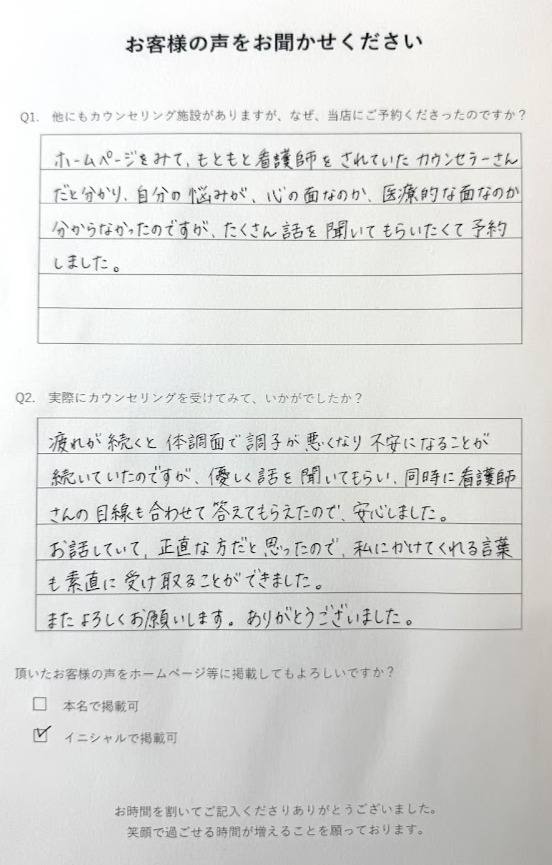 お客様の声をお聞かせください
Q1. 他にもカウンセリング施設がありますが、なぜ、当店にご予約くださったのですか？
ホームページをみて、もともと看護師をされていたカウンセラーさん
だと分かり、自分の悩みが、心の面なのか、医療的な面なのか
分からなかったのですが、たくさん話を聞いてもらいたくて予約
しました。
Q2. 実際にカウンセリングを受けてみて、いかがでしたか？
疲れが続くと体調面で調子が悪くなり不安になることが
続いていたのですが、優しく話を聞いてもらい、同時に看護師
さんの目線も合わせて答えてもらえたので、安心しました。
お話していて、正直な方だと思ったので、私にかけてくれる言葉
も素直に受け取ることができました。
またよろしくお願いします。ありがとうございました。
頂いたお客様の声をホームページ等に掲載してもよろしいですか？
本名で掲載可
イニシャルで掲載可
お時間を割いてご記入くださりありがとうございました。
笑顔で過ごせる時間が増えることを願っております。